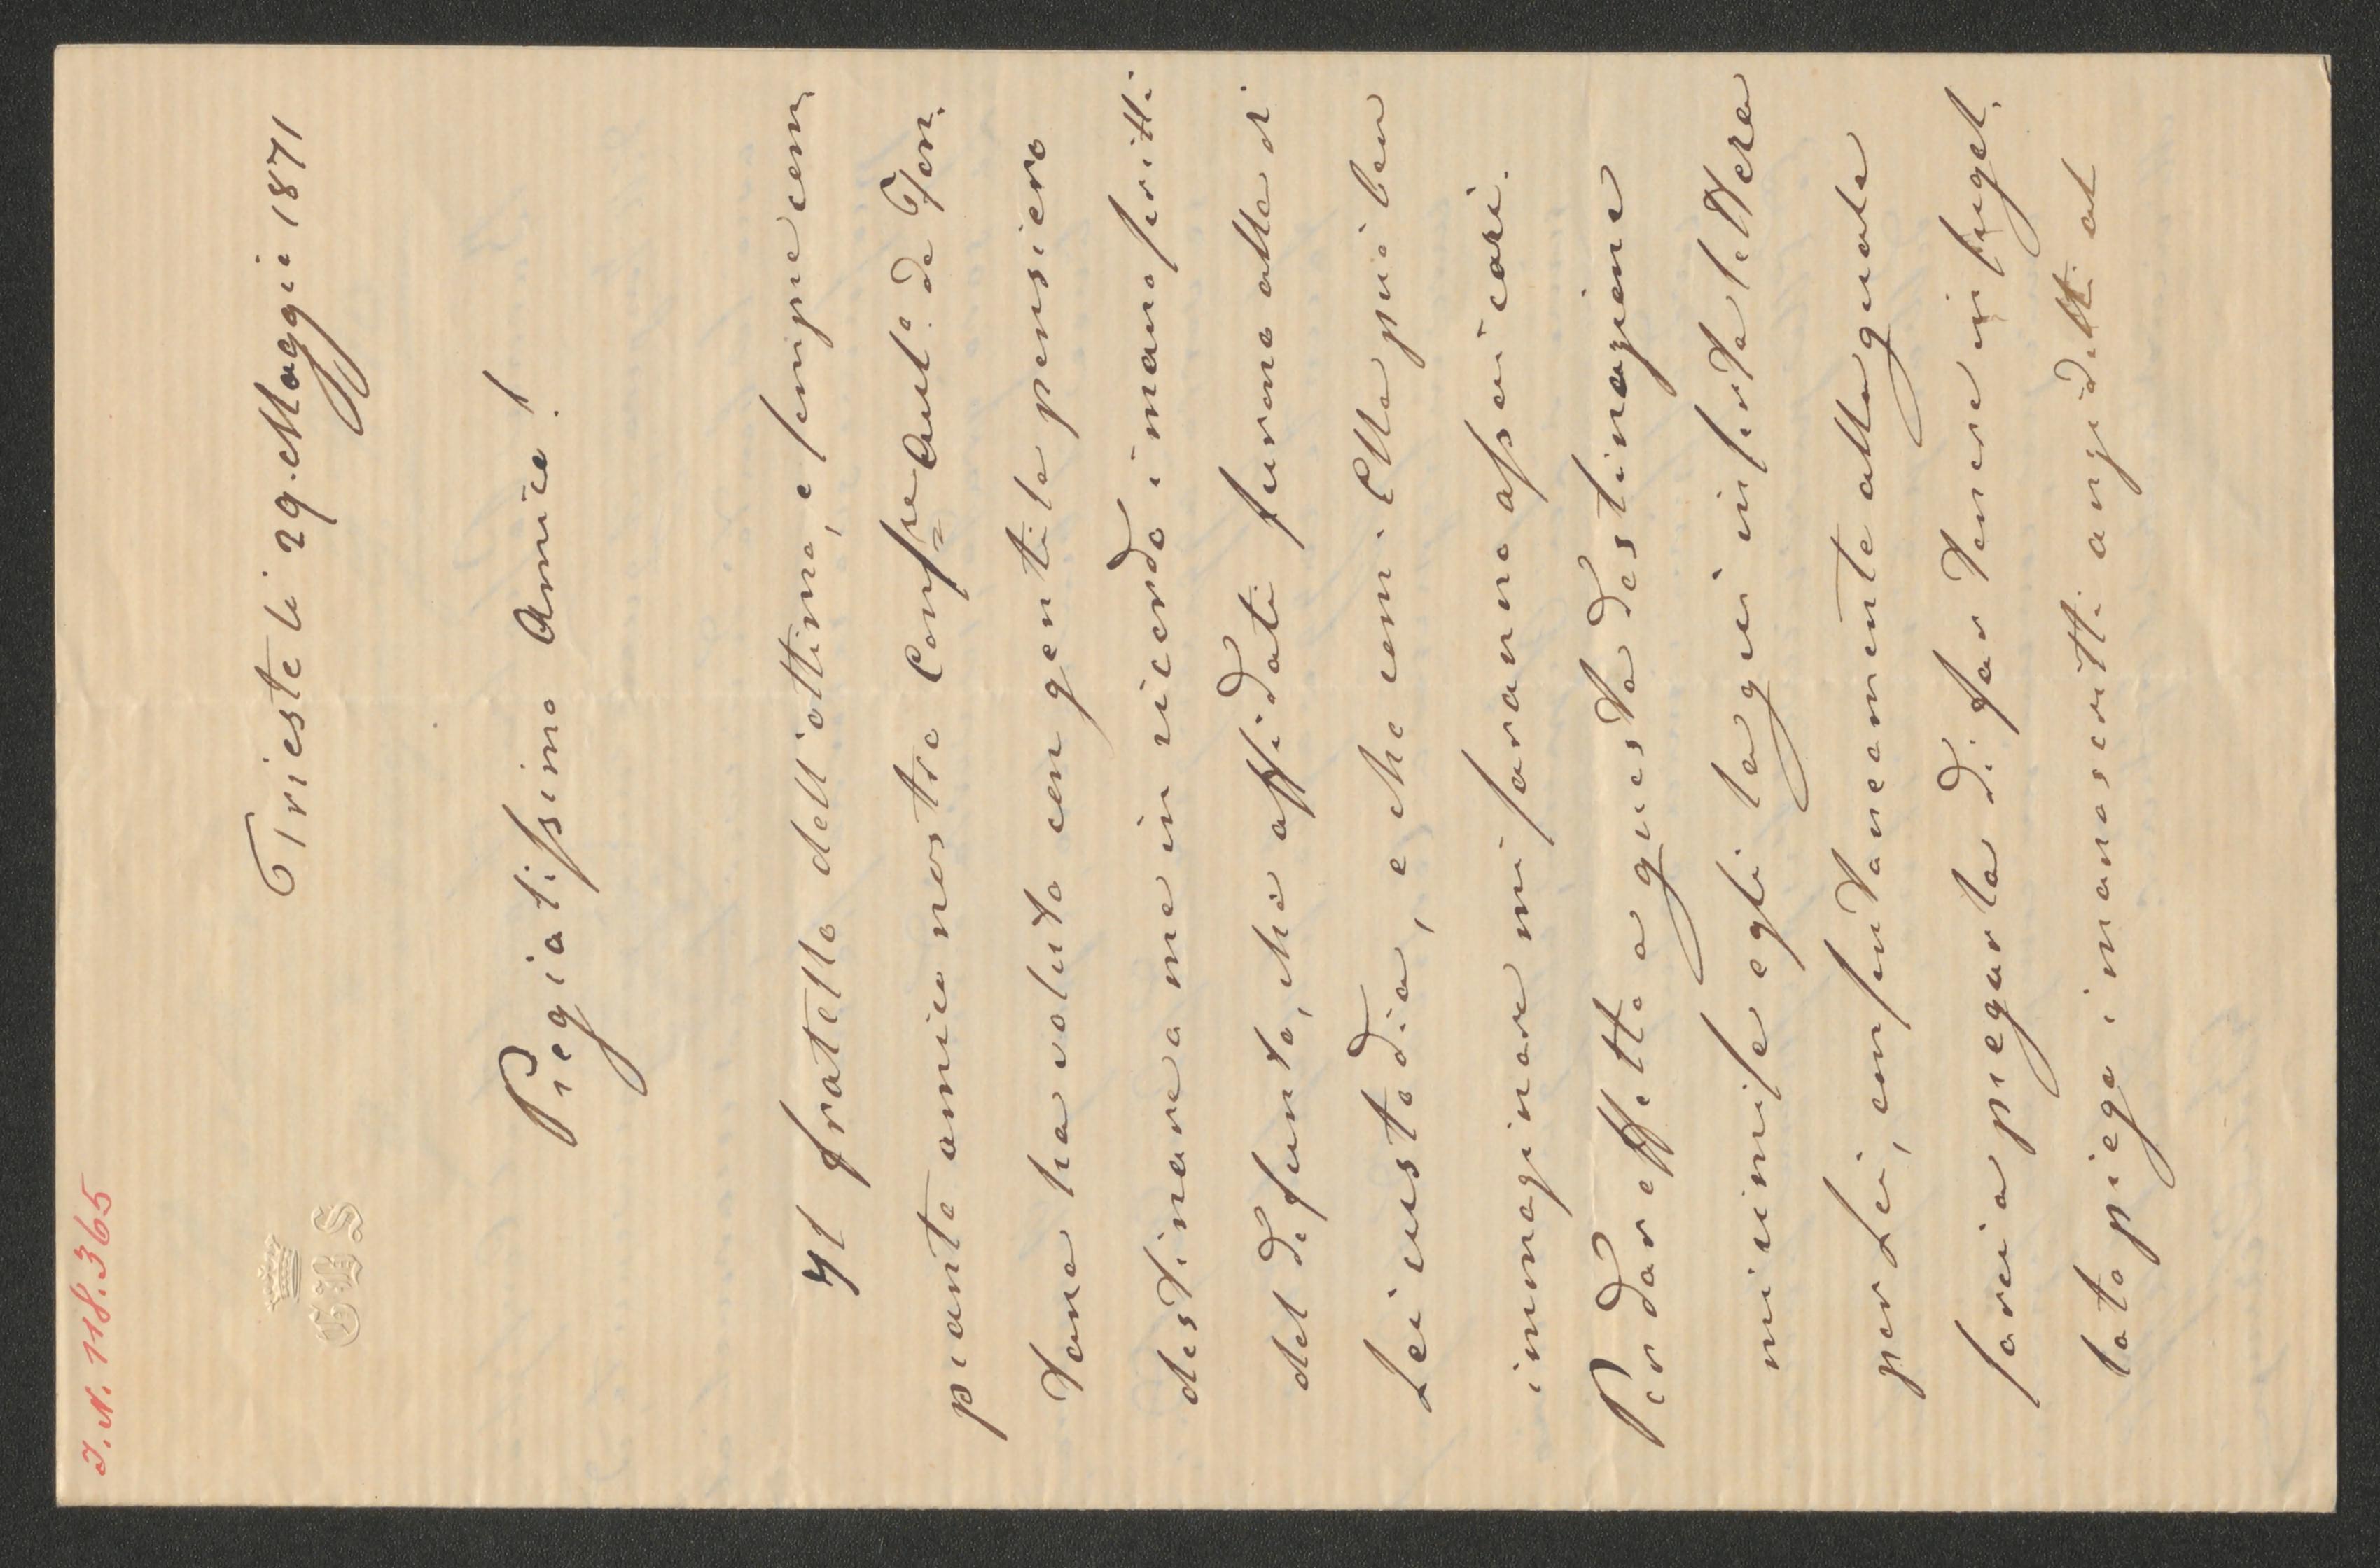 I.N. 118.365
GBS
Trieste li 29. Maggio 1871
Pregiatissimo Amico!
Il fratello dell'ottimo, e sempre com,
pianto amico nostro Consre Aulo de Fon,
tana ha voluto con gentile pensiero
destinare a me in ricordo i manoscritti
del defunto, che affidati furono alla di
Lei custodia, e che com'Ella può ben
immaginare mi saranno assai cari.
Per dar effetto a questa destinazione
mi rimise egli la qui inserta lettera
per Lei, consentaneamente alla quale
sarei a pregarla di far tenere in sugel,
lato piego i manoscritti anzidetti al